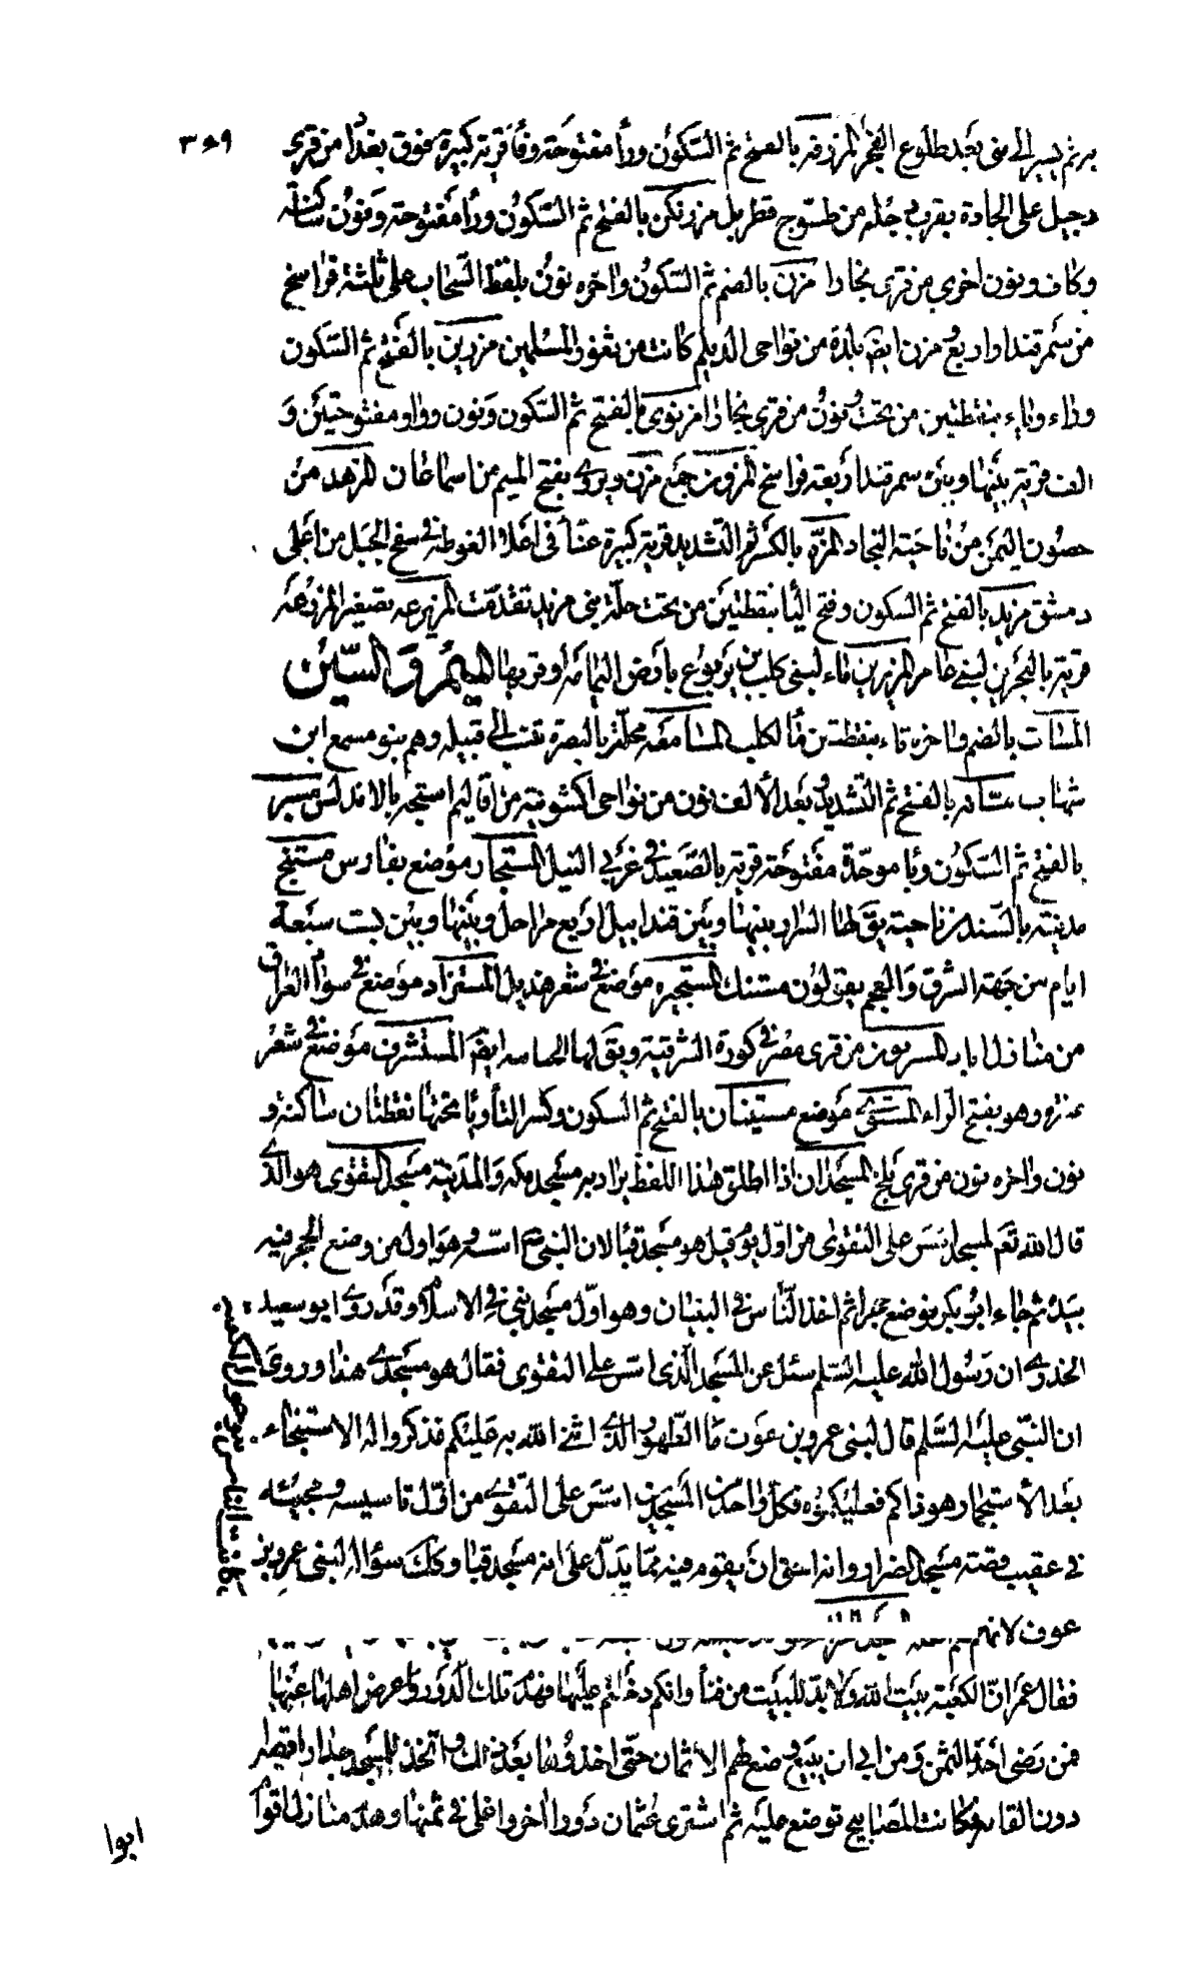 ٣٤٩
بر ثم يسير الى منى بعد طلوع الفجر المزرفة بالفتح ثم السكون وراء مفتوحة وفاء قرية كبيرة فوق بغداد من قرى
دجيل على الجادة بقرب دجلة من طسوج قطربل مزرنكن بالفتح ثم السكون وراء مفتوحة ونون ساكنة
وكاف ونون اخرى من قرى بخارا مزن بالضم ثم السكون واخره نون بلفظ السحاب على ثلثة فراسخ
من سمرقند او اربع ومزن ايضا بلدة من نواحى الديلم كانت من ثغور المسلمين مزرين بالفتح ثم السكون
وراء وياء بنقطتين من تحت ونون من قرى بخارا مزنوى بالفتح ثم السكون ونون وواو مفتوحتين و
الف قرية بينها وبين سمرقند اربعة فراسخ المزون جمع مزن ويروى بفتح الميم من اسماء عمان المزهد من
حصون اليمن من ناحية النجاد المزة بالكسر ثم التشديد قرية كبيرة غناء فى اعلا الغوطة فى سفح الجبل من اعلى
دمشق مزيد بالفتح ثم السكون وفتح الياء بنقطتين من تحت حلة بنى مزيد تقدمت المزيرعة بصيغة المزرعة
قرية بالبحرين لبنى عامر المزيرين ماء لبنى كليب بن يربوع بارض اليمامة او قربها الميم والسين
المسات بالضم واخره تاء بنقطتين ماء لكلب المسامعة محلة بالبصرة تنسب الى قبيله وهم بنو مسمع ابن
شهاب مسانة بالفتح ثم التشديد وبعد الالف نون من نواحى اكشونية من اقاليم استجه بالاندلس مسبر
بالفتح ثم السكون وباء موحدة مفتوحة قرية بالصعيد فى غربى النيل المستجار موضع بفارس مستنج
مدينة بالسند من ناحية يق لها الراز بينها وبين قندابيل اربع مراحل وبينها وبين بست سبعة
ايام من جهة الشرق والعجم يقولون مستنك المستحيره موضع فى شعر هذيل المستراد موضع فى سواد العراق
من منازل اياد من قرى مصر فى كورة الشرقية ويق لها ايضا المستشرف موضع فى شعر
عنتره وهو بفتح الراء المستوى موضع مستينان بالفتح ثم السكون وكسر التاء وياء تحتها نقطتان ساكنة و
نون واخره نون من قرى بلخ المسجدان اذا اطلق هذا اللفظ يراد به مسجد مكه والمدينة مسجد التقوى هو الذى
قال الله تعم لمسجد اسس على التقوى من اول يوم قيل هو مسجد قبا لان النبى ص اسسه وهو اول من وضع الحجر فيه
بيده ثم جاء ابو بكر بوضع حجرا ثم اخذ الناس فى البنيان وهو اول مسجد بنى فى الاسلام وقد روى ابو سعيد
الخدرى ان رسول الله عليه السلم سئل عن المسجد الذى اسس على التقوى فقال هو مسجدى هذا وروى
ان النبى عليه السلم قال لبنى عمرو بن عوف ما الطهور الذى اثنى الله به عليكم فذكروا له الاستنجاء
بعد الاستجمار هو ذاكم فعليكموه فكل واحد من المسجدين اسس على التقوى من اول تاسيسه ومجيئه
فى عقيب قصة مسجد الضرار وانه اسنى ان يقوم فيه مما يدل على انه مسجد قبا وكذلك سؤاله لبنى عمرو بن
عوف لانهم
فقال عمر ان الكعبة بيت الله ولا بد للبيت من فناء وانكم دخلتم عليها فهدم تلك الدور وعرض اهلها عنها
فمن رضى اخذ الثمن ومن ابى ان يبيع وضع لهم الاثمان حتى اخذوها بعد ذلك واتخذ للمسجد جدارا قصار
دون القامة وكانت المصابيح توضع عليه ثم اشترى عثمان دورا اخر واغلى فى ثمنها وهدم منازل اقوام
ابوا